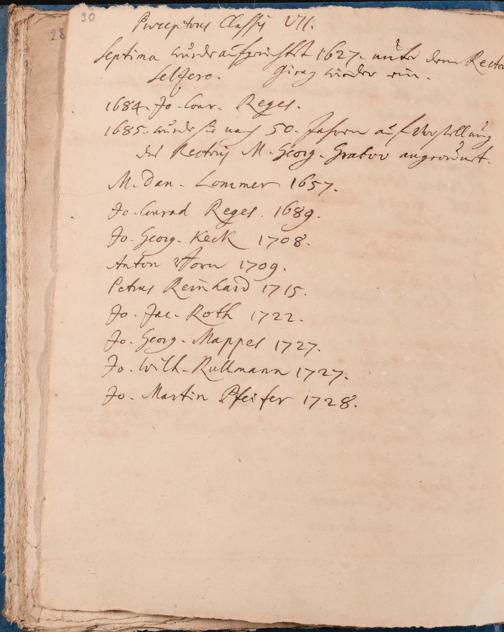 30
28
Præceptores Classis VII.
Septima wurde aufgerichtet 1627. unter dem Rectore
Gieng wieder ein.
1684. Jo. Conr. Reges.
1685. wurde sie nach 50. Jahren auf Vorstellung
des Rectoris M. Georg. Grabov angeordnet.
M. Dan. Lommer 1657.
Jo. Conrad Reges. 1689.
Jo. Georg. Keck 1708.
Anton Horn 1709.
Petrus Reinhard 1715.
Jo. Jac. Roth 1722.
Jo. Georg. Mappes 1727.
Jo. Wilh. Rullmann 1727.
Jo. Martin Pfeifer 1728.